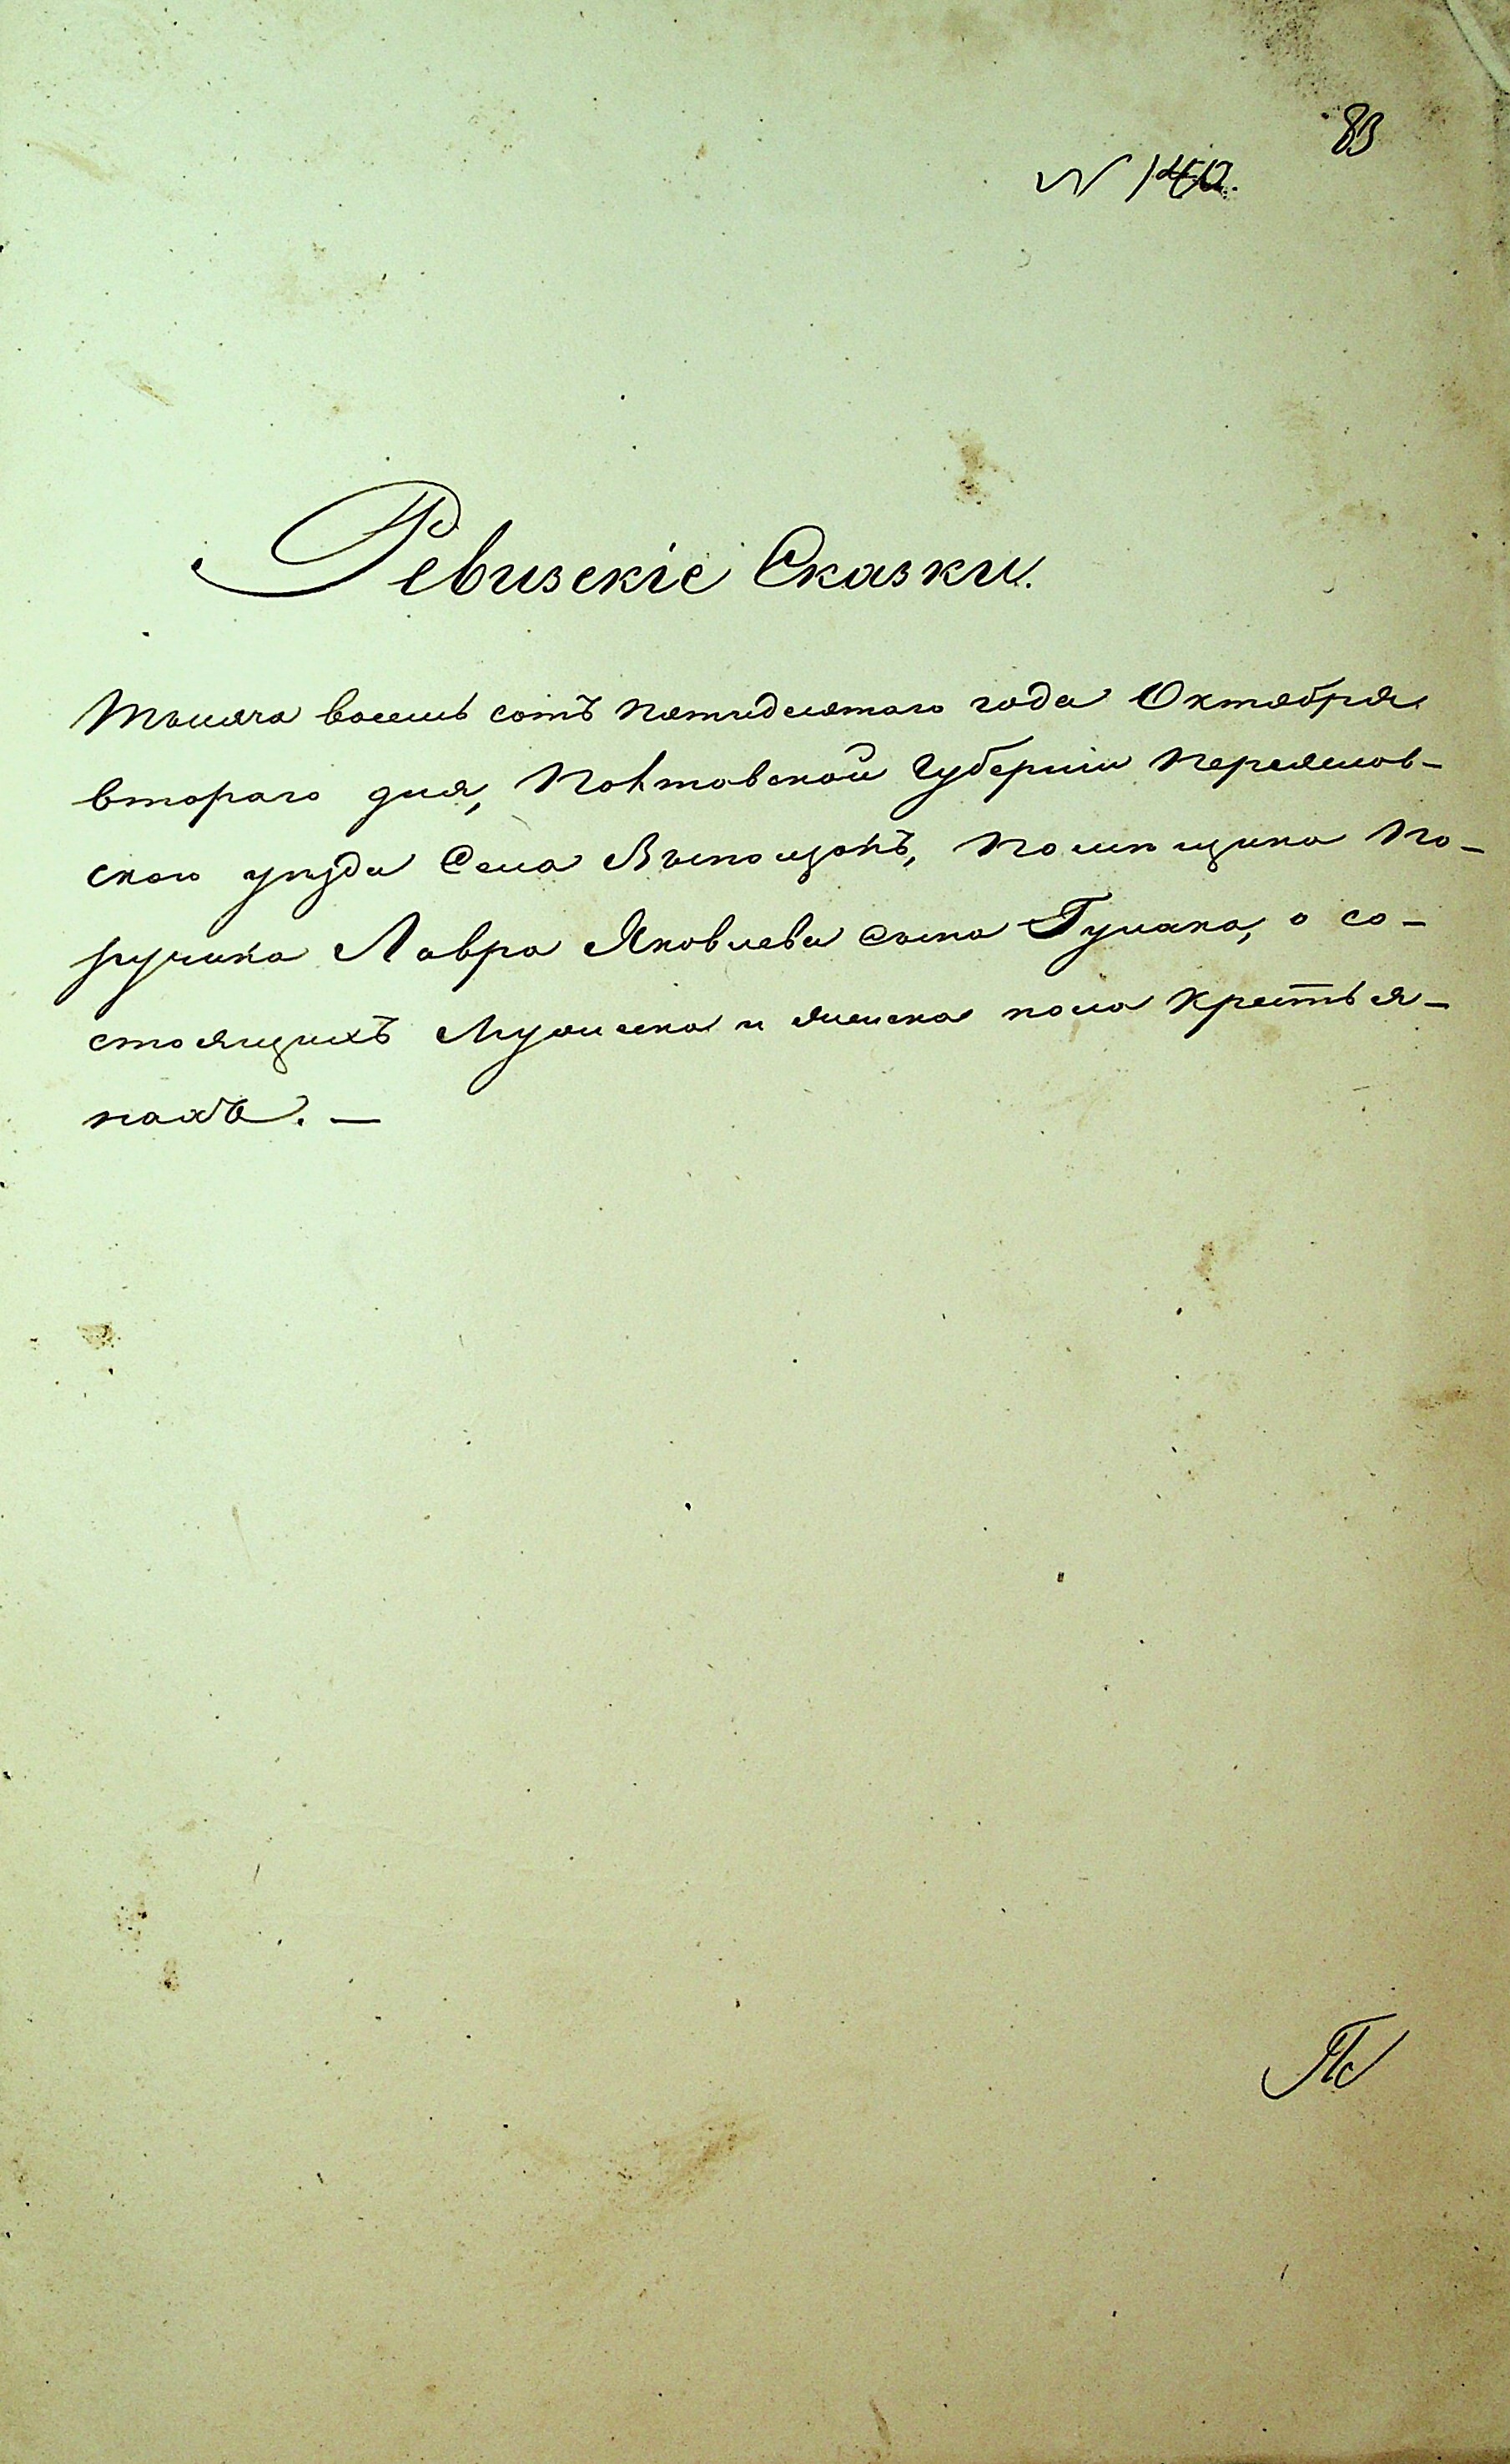 83
N 140.
Ревизскіе Сказки.
Тысяча восемь сотъ пятидесятаго года Октября
втораго дня, Полтавской Губерніи Переяслов-
скаго уезда Села Выползокъ, Помещика По-
ручика Лавра Яковлева сына Гулака, о со-
стоящихъ Мужеска и женска пола крестья-
нахъ. —